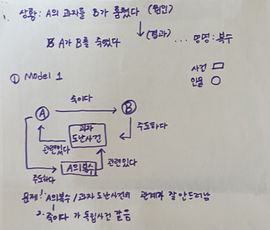 상황: A의 과자를 B가 훔쳤다 (원인)
(결과)
A가 B를 죽였다 ... 명명: 복수
사건
인물
① Model 1
죽이다
A
B
과자
도난사건
관련있다
주도하다
관련있다
주도하다
A의복수
문제 1. A의복수 / 과자 도난사건의 관계가 잘 안드러남
2. 죽이다 가 독립사건 같음